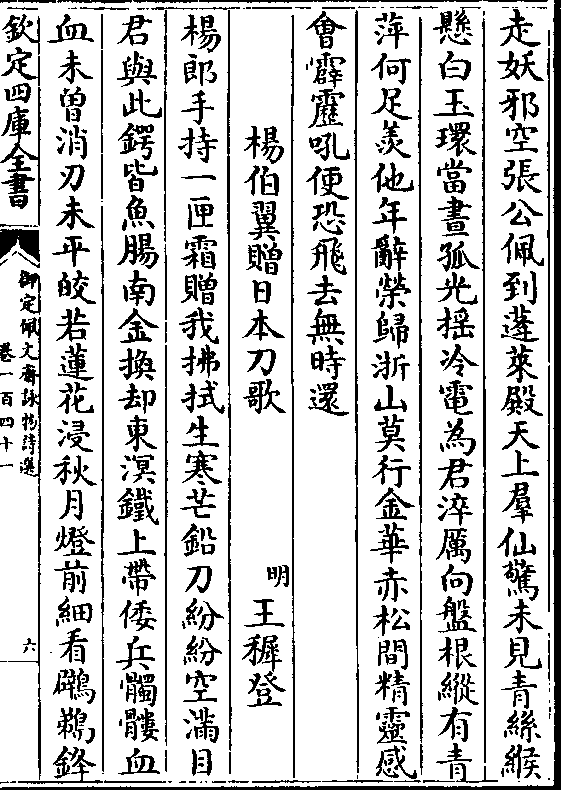 走妖邪空張公佩到蓬萊殿天上羣仙驚未見青絲緱
懸白玉環當晝孤光揺冷電為君淬厲向盤根縱有青
萍何足羨他年辭榮歸浙山莫行金華赤松間精靈感
會霹靂吼便恐飛去無時還
楊伯翼贈日本刀歌 明 王穉登
楊郎手持一匣霜贈我拂拭生寒芒鉛刀紛紛空滿目
君與此鍔皆魚腸南金換却東溟鐵上帶倭兵髑髏血
血未曽消刃未平皎若蓮花浸秋月燈前細看鸊鵜鋒
欽定四庫全書
御定佩文齋詠物詩選
卷一百四十一
六